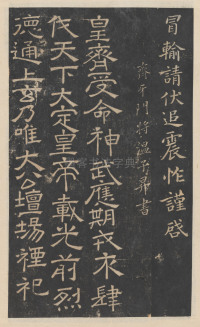 冒輸請伏追震怍謹啓
齊平門將溫子昇書
皇齊受命神武應期戎衣肆
伐天下大定皇帝載光前烈
德通上玄乃唯大公壇場禋祀